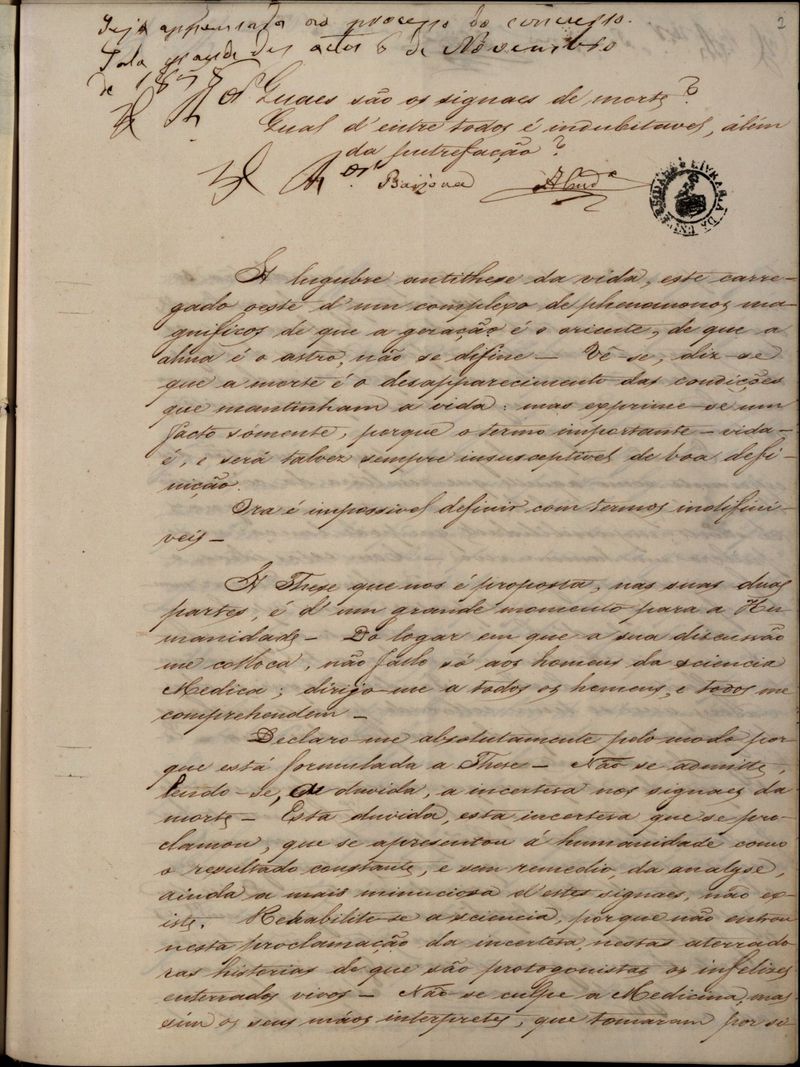 Seja appensada ao processo do concurso.
Sala grande dos actos 6 de Novembro
de 1858
2
Quaes são os signaes de morte?
Qual d'entre todos é indubitavel, álém
da putrefação?
A lugubre antithese da vida, este carre-
gado oeste d'um complexo de phenomenos ma-
gnificos de que a geração é o oriente, de que a
alma é o astro, não se define — Vê-se, diz-se
que a morte é o desapparecimento das condições
que mantinham a vida: mas exprime-se um
facto sómente, porque o termo importante — vida —
é, e será talvez sempre insusceptivel de boa defi-
nição.
Ora é impossivel definir com termos indifini-
veis —
A These que nos é proposta, nas suas duas
partes, é d'um grande momento para a Hu-
manidade — Do logar em que a sua discussão
me colloca, não fallo só aos homens da sciencia
Medica; dirijo-me a todos os homens, e todos me
comprehendem —
Declaro-me absolutamente pelo modo por-
que está formulada a These — Não se admitte,
lendo-se, a duvida, a incertesa nos signaes da
morte — Esta duvida, esta incertesa que se pro-
clamou, que se apresentou á humanidade como
o resultado constante, e sem remedio, da analyse,
ainda a mais minuciosa d'estes signaes, não ex-
iste. Rehabilite-se a sciencia, porque não entrou
nesta proclamação da incertesa, nestas aterrado-
ras historias de que são protogonistas os infelizes
enterrados vivos — Não se culpe a Medicina, mas
sim os seus máos interpretes, que tomaram por si-